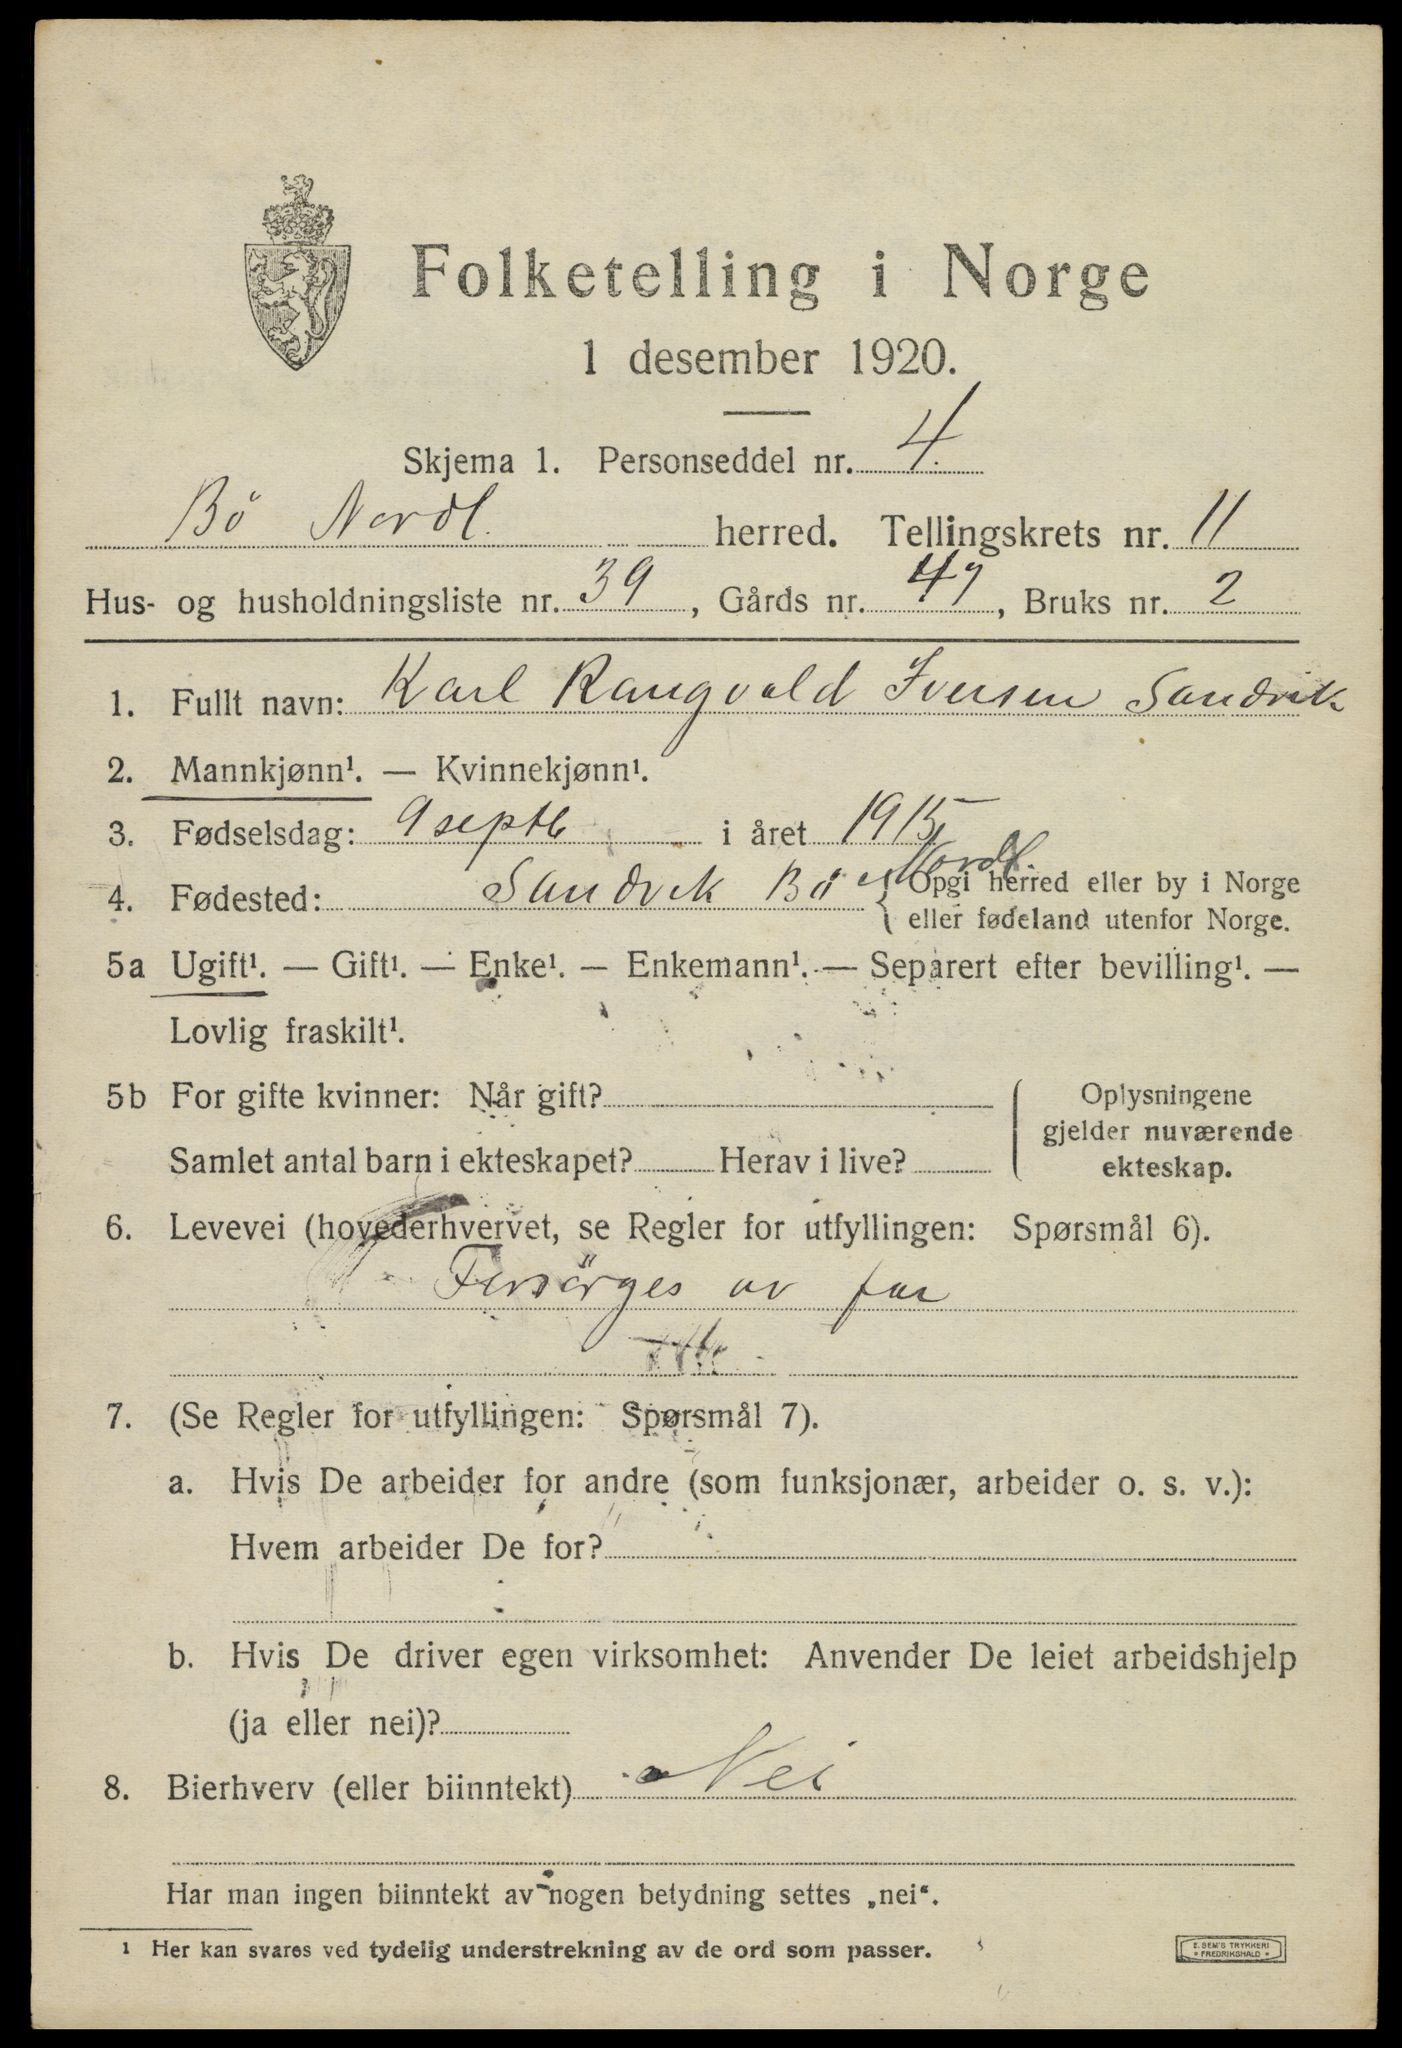 Folketelling i Norge
1 desember 1920.
Skjema 1. Personseddel nr. 4.
Bö Nordl. herred. Tellingskrets nr. 11
Hus- og husholdningsliste nr. 39, Gårds nr. 47, Bruks nr. 2
1. Fullt navn: Karl Rangvald Iversen Sandvik
2. Mannkjønn¹. — Kvinnekjønn¹.
3. Fødselsdag: 9 septb i året 1915
4. Fødested: Sandvik Bö Nordl. { Opgi herred eller by i Norge
eller fødeland utenfor Norge.
5a Ugift¹. — Gift¹. — Enke¹. — Enkemann¹. — Separert efter bevilling¹. —
Lovlig fraskilt¹.
5b For gifte kvinner: Når gift?
Samlet antal barn i ekteskapet? Herav i live?
Oplysningene
gjelder nuværende
ekteskap.
6. Levevei (hovederhvervet, se Regler for utfyllingen: Spørsmål 6).
Forsörges av far
7. (Se Regler for utfyllingen: Spørsmål 7).
a. Hvis De arbeider for andre (som funksjonær, arbeider o. s. v.):
Hvem arbeider De for?
b. Hvis De driver egen virksomhet: Anvender De leiet arbeidshjelp
(ja eller nei)?
8. Bierhverv (eller biinntekt) Nei
Har man ingen biinntekt av nogen betydning settes „nei“.
¹ Her kan svares ved tydelig understrekning av de ord som passer.
E. SEM'S TRYKKERI
* FREDRIKSHALD *